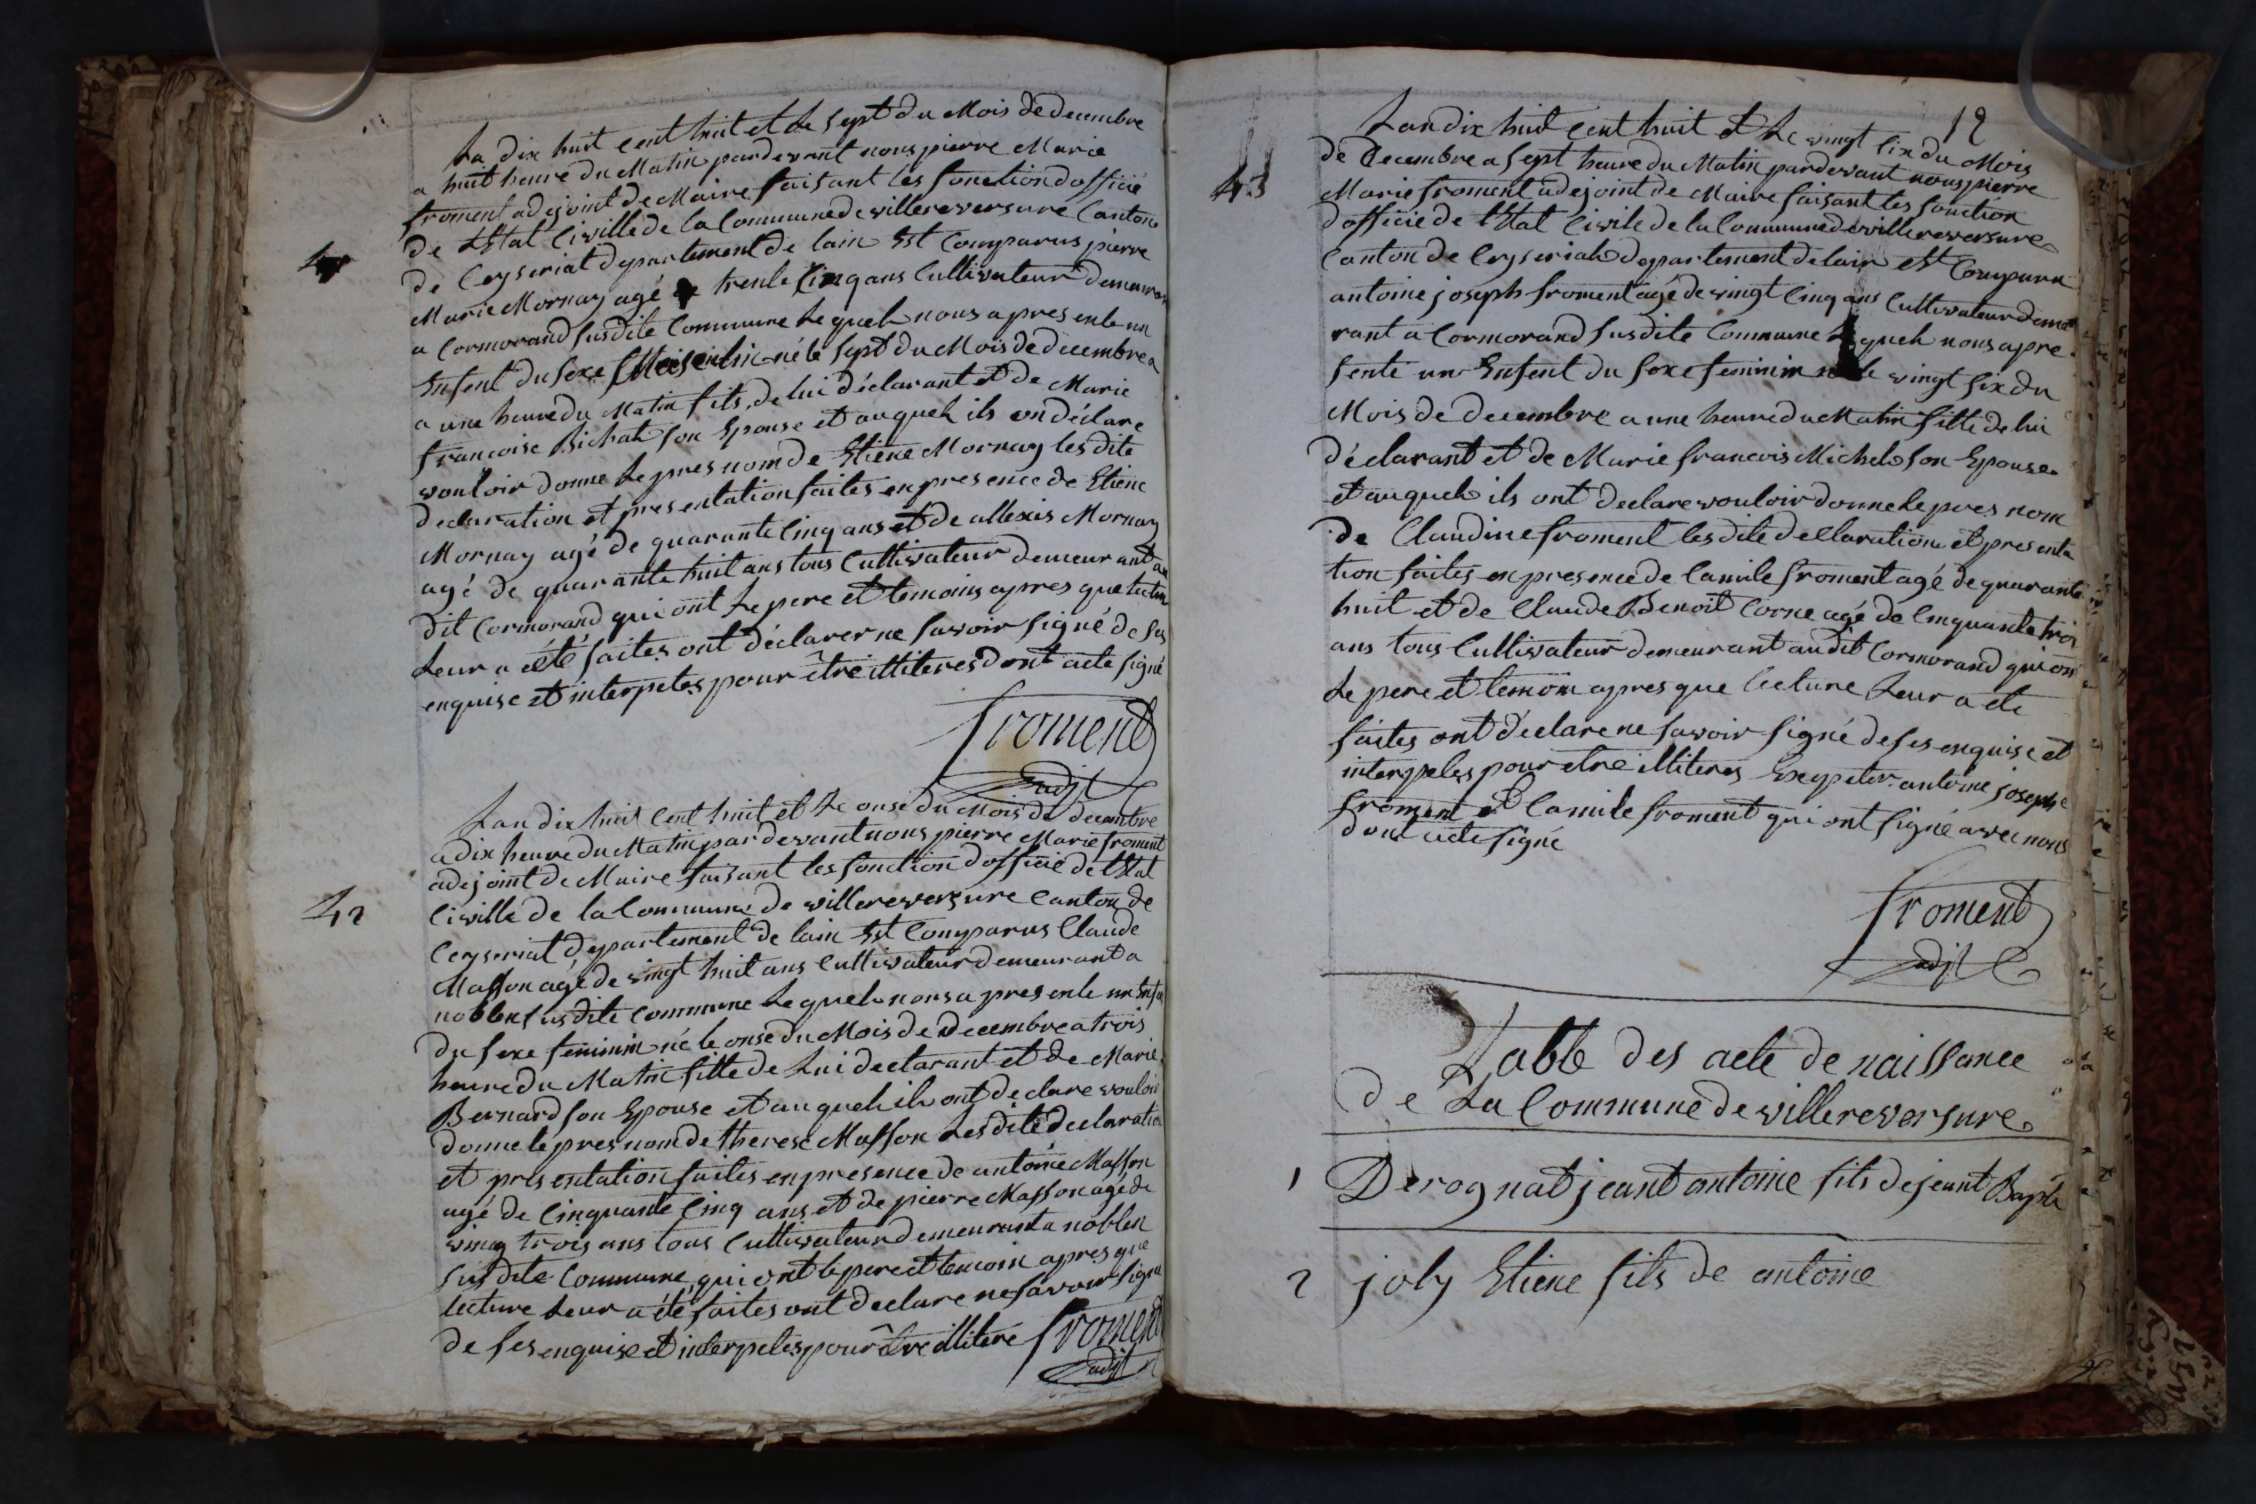 La dix huit cent huit et Le Sept du Mois de decembre
a huit heure du Matin pardevant nous pierre Marie
froment adejoint de Maire faisant les fonction d officié
de LEtat Civille de la Commune de villereversure Canton
de Ceyseriat departement de lain Est Comparus pierre
Marie Mornay agé de trente Cinq ans Cultivateur demeuran
a Cormorand Susdite Commune Lequel nous a presente un
Enfent du Sexe Maiseulin né le Sept du Mois de decembre a
a une heure du Matin fils de lui déclarant et de Marie
francoise Bichat Son Epouse et auquel ils on déclare
vouloir donne Le pres nom de Etiene Mornay les dite
declaration et presentation faites en presence de Etiene
Mornay agé de quarante Cinq ans et de allexis Mornay
agé de quarante huit ans tous Cultivateur demeurant au
dit Cormorand qui ont Le pere et temoins apres que lectur
Leur a été faites ont déclarer ne Savoir Signé de Ses
enquise et interpeles pour être illiteres dont acte Signé
froment
adjt
42
Lan dix huit Cent huit et Le onse du Mois de decembre
a dix heure du Matin par devant nous pierre Marie froment
adejoint de Maire faisant les fonction d officié de LEtat
Civille de la Commune de villereversure Canton de
Ceyseriat departement de lain Est Comparus Claude
Masson agé de vingt huit ans Cultivateur demeurant a
noblen Susdite Commune Lequel nous a presente un Enfa
du Sexe feminin né le onse du Mois de Decembre a trois
heure du Matin fille de Lui declarant et de Marie
Bernard Son Epouse et auquel ils ont declare vouloir
donne le pres nom de therese Masson Les dite declaration
et présentation faites en presence de antoine Masson
agé de Cinquante Cinq ans et de pierre Masson agé de
ving trois ans tous Cultivateur demeurant a noblen
Susdite Commune qui ont le pere et temoin apres que
lecture Leur a été faites ont declare ne Savoir Signé
de Ses enquise et interpeles pour être illiteré froment
adjt
12
43
Lan dix huit Cent huit et Le vingt Six du Mois
de Decembre a Sept heure du Matin pardevant nous pierre
Marie froment adejoint de Maire faisant les fonction
d officié de LEtat Civile de la Commune de villereversure
Canton de Ceyseriat departement de lain est Comparu
antoine joseph froment agé de vingt Cinq ans Cultivateur deme
rant a Cormorand Susdite Commune Lequel nous a pre
Sente un Enfent du Sexe feminin né le vingt Six du
Mois de Decembre a une heure du Matin fille de lui
déclarant et de Marie francois Michel Son Epouse
et auquel ils ont declare vouloir donne Le pres nom
de Claudine froment les dite declaration et presenta
tion faites en presence de Camile froment agé de quarante
huit et de Claude Benoit Corne agé de Cinquante trois
ans tous Cultivateur demeurant audit Cormorand qui ont
Le pere et temoin apres que lecture Leur a ete
faites ont déclare ne Savoir Signé de Ses enquise et
interpeles pour etre illiteres Exepeter antoine joseph
froment et Camile froment qui ont Signé avec nous
dont acte Signé
froment
adjt
Table des acte de naissance
de La Commune de villereversure
1 Derognat jeant antoine fils de jeant Bapte
2 joly Etiene fils de antoine